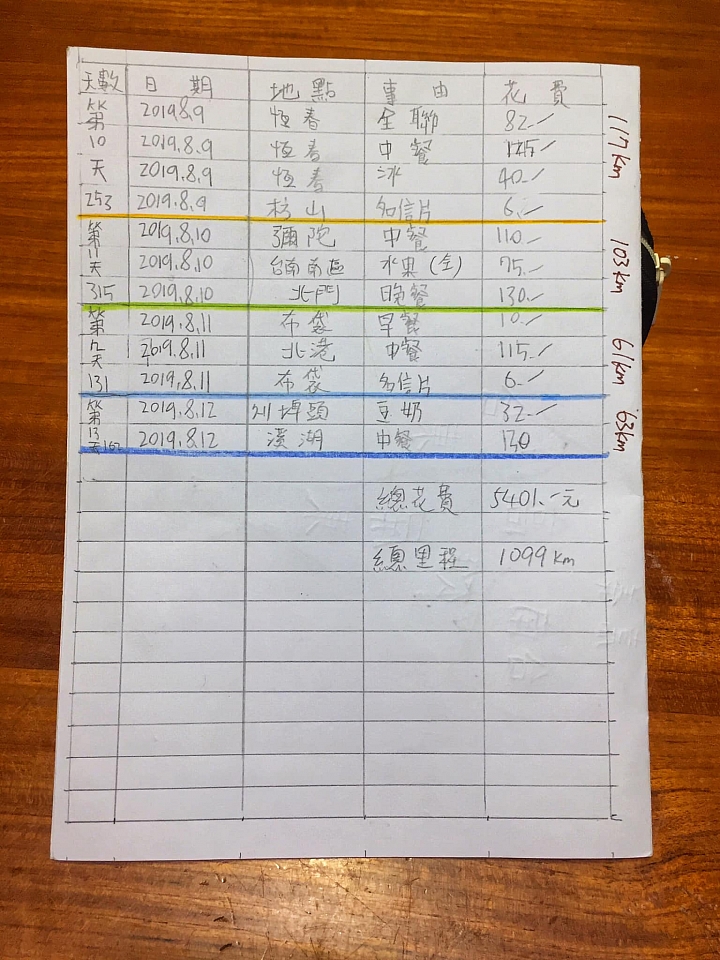 天數 日期 地點 事由 花費
第 2019.8.9 恆春 全聯 82.-
10 2019.8.9 恆春 中餐 125.-
天 2019.8.9 恆春 冰 40.-
253 2019.8.9 枋山 名信片 6.-
第 2019.8.10 彌陀 中餐 110.-
11天 2019.8.10 台南南區 水果(全) 75.-
315 2019.8.10 北門 晚餐 130.-
第 2019.8.11 布袋 早餐 10.-
12天 2019.8.11 北港 中餐 115.-
131 2019.8.11 布袋 名信片 6.-
第 2019.8.12 埤頭 豆奶 32.-
13天162 2019.8.12 溪湖 中餐 130
總花費 5401.-元
總里程 1099km
117km
103km
61km
63km